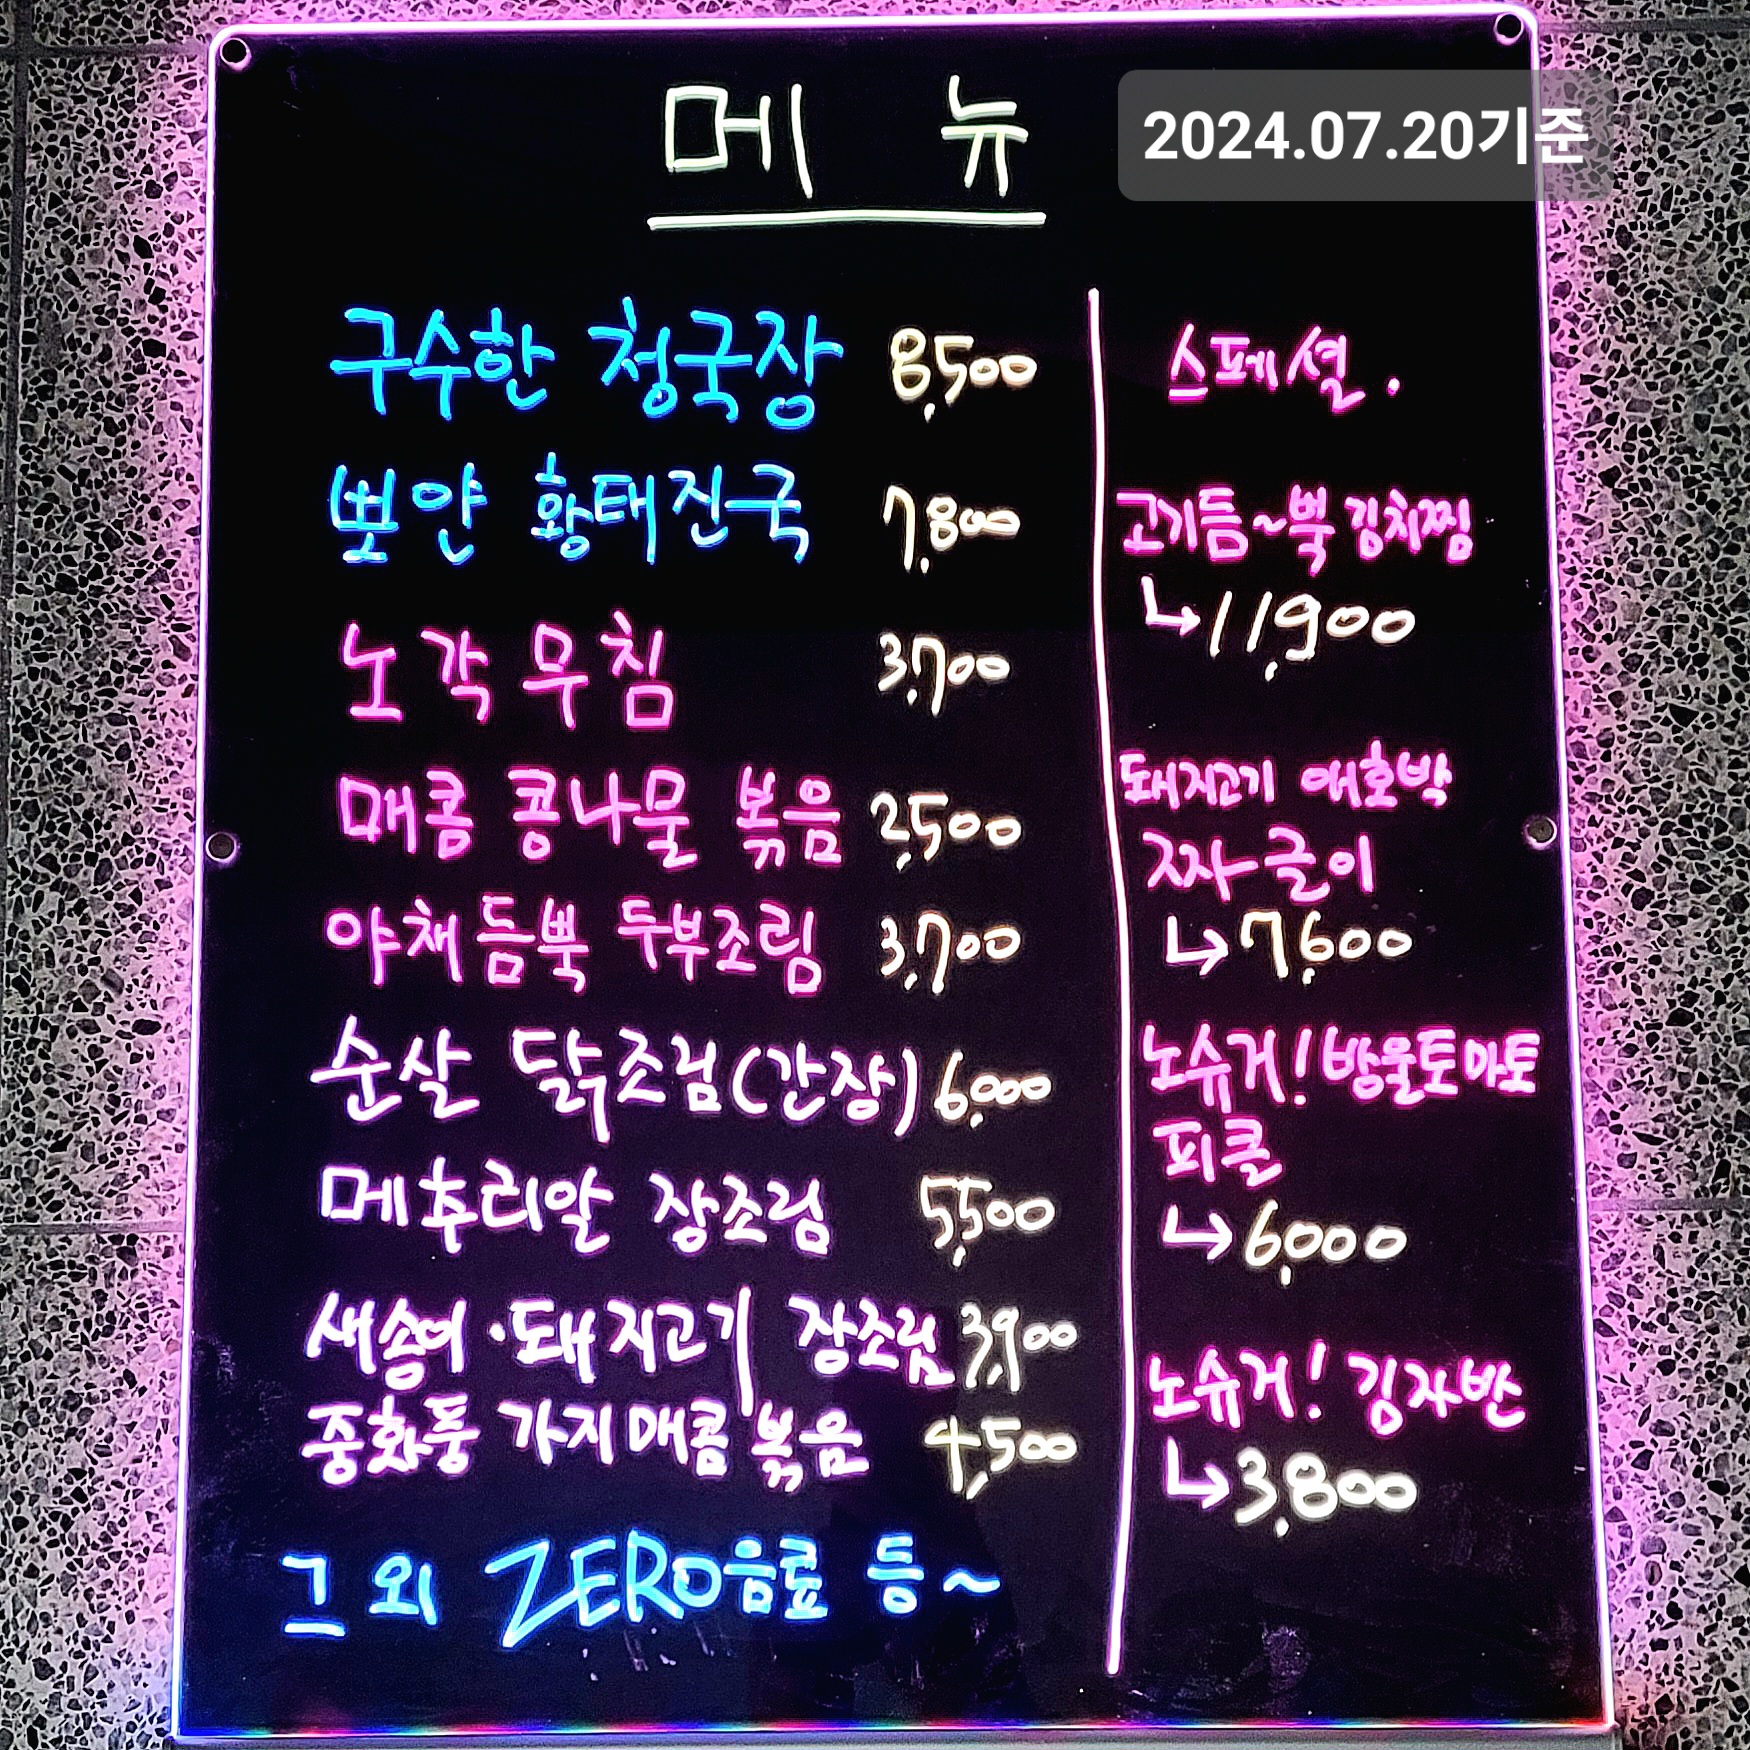 메뉴
2024.07.20기준
구수한 청국장 8,500
뽀얀 황태진국 7,800
노각무침 3,700
매콤 콩나물 볶음 2,500
야채듬뿍 두부조림 3,700
순살 닭조림(간장) 6,000
메추리알 장조림 5,500
새송이·돼지고기 장조림 3,900
중화풍 가지매콤볶음 4,500
그 외 ZERO음료 등~
스페셜.
고기듬~뿍 김치찜
↳11,900
돼지고기 애호박
짜글이
↳7,600
노슈거! 방울토마토
피클
↳6,000
노슈거! 김자반
↳3,800